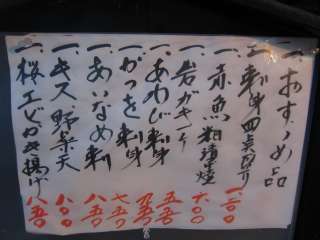 一、おすゝめ品
一、刺身四点盛り 一、三〇〇
一、赤魚粕漬焼 六〇〇
一、岩ガキ一ケ 五五〇
一、あわび刺身
一、かつを刺身 七五〇
一、あいなめ刺 八五〇
一、キス野菜天 八〇〇
一、桜エビかき揚げ 八五〇